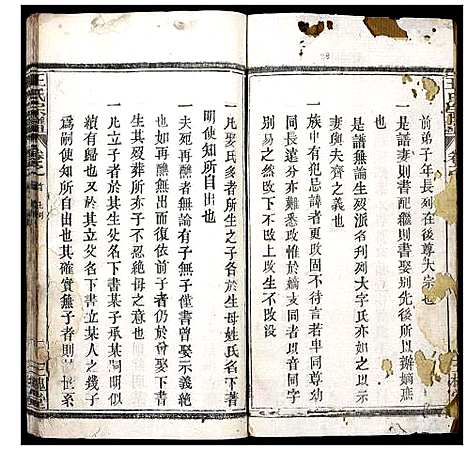 前弟子年長列在後尊大宗也
一是譜無論生殁派名刋列大字氏亦如之辦嫡燕
譜妻則書配繼則書娶別先後也
妻與夫齊之義也
一族中有犯忌諱者更改固不待言若卑同尊幼
同長分在亦難悉改惟於嫡支同者以音同字
別易之然改下不改上改生不改没
一凡娶氏多者所生之子名於生母姓氏名下著
明使知所自出也
一夫死再醮無出有子無子僅書曾娶示義絶
也如再醮無出而復依前子者仍於曾娶下
生其殁葬所亦子不忍絶母之意也
一凡立子者於其生父名下書某子某嗣明似
續有歸也又於其立父名下書立某人之幾子
爲嗣使知所自出也其確實無子者則世系
王氏宗譜